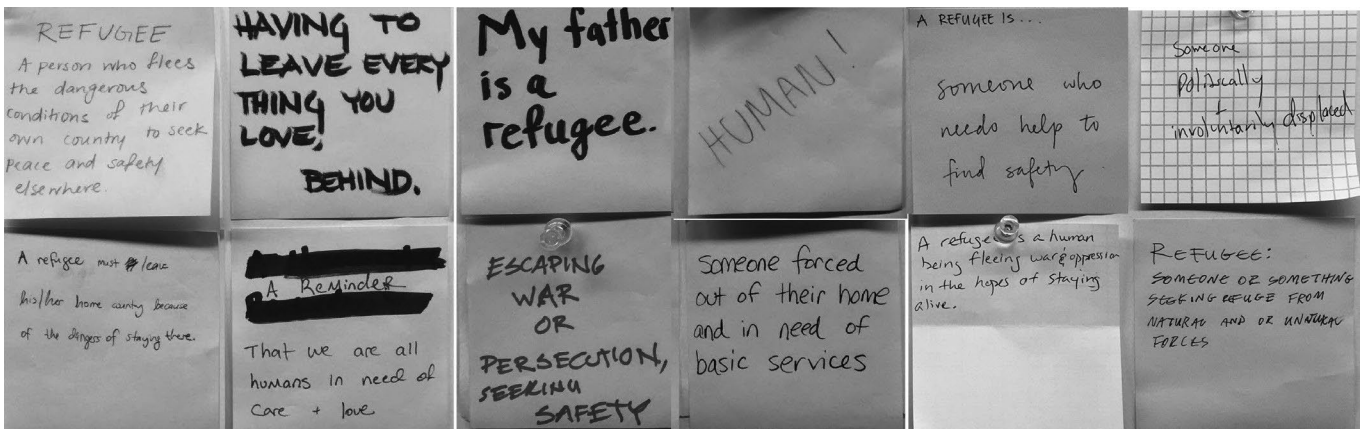 REFUGEE
A person who flees
the dangerous
conditions of their
own country to seek
peace and safety
elsewhere.
HAVING TO
LEAVE EVERY
THING YOU
LOVE,
BEHIND.
My father
is a
refugee.
HUMAN!
A REFUGEE IS...
someone who
needs help to
find safety.
Someone
Politically
+
involuntarily displaced
A refugee must leave
his/her home country because
of the dangers of staying there.
A Reminder
That we are all
humans in need of
Care + love
ESCAPING
WAR
OR
PERSECUTION,
SEEKING
SAFETY
Someone forced
out of their home
and in need of
basic services
A refugee is a human
being fleeing war & oppression
in the hopes of staying
alive.
REFUGEE:
SOMEONE OR SOMETHING
SEEKING REFUGE FROM
NATURAL AND OR UNNATURAL
FORCES